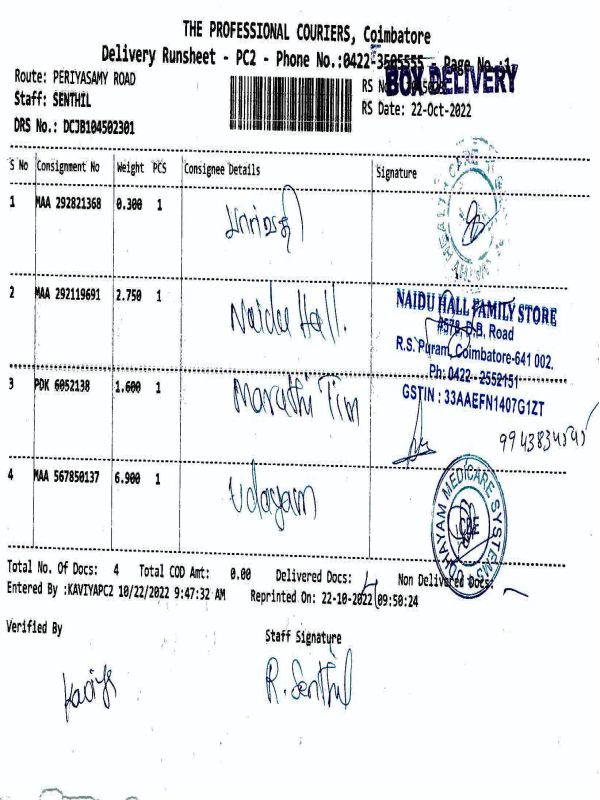 THE PROFESSIONAL COURIERS, Coimbatore
Delivery Runsheet - PC2 - Phone No.:0422-3505555 - Page No.:1
BOX DELIVERY
Route: PERIYASAMY ROAD
Staff: SENTHIL
RS Date: 22-Oct-2022
DRS No.: DCJB104502301
S No Consignment No Weight PCS Consignee Details Signature
1 MAA 292821368 0.300 1 பார்வதி
2 MAA 292119691 2.750 1 Naidu Hall.
NAIDU HALL FAMILY STORE
#578, D.B. Road
R.S. Puram, Coimbatore-641 002.
Ph: 0422 - 2552151
GSTIN : 33AAEFN1407G1ZT
3 PDK 6052138 1.600 1 Maruthi Tim
4 MAA 567850137 6.900 1 Udayam
UDHAYAM MEDICARE SYSTEMS
CBE
Total No. Of Docs: 4 Total COD Amt: 0.00 Delivered Docs: 4 Non Delivered Docs:
Entered By :KAVIYAPC2 10/22/2022 9:47:32 AM Reprinted On: 22-10-2022 09:50:24
Verified By Staff Signature
Kaviya R. Senthil